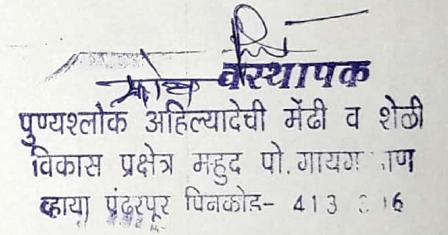 वस्थापक
पुण्यश्लोक अहिल्यादेवी मेंढी व शेळी
विकास प्रक्षेत्र महुद पो.
व्हाया पंढरपूर पिनकोड- 413